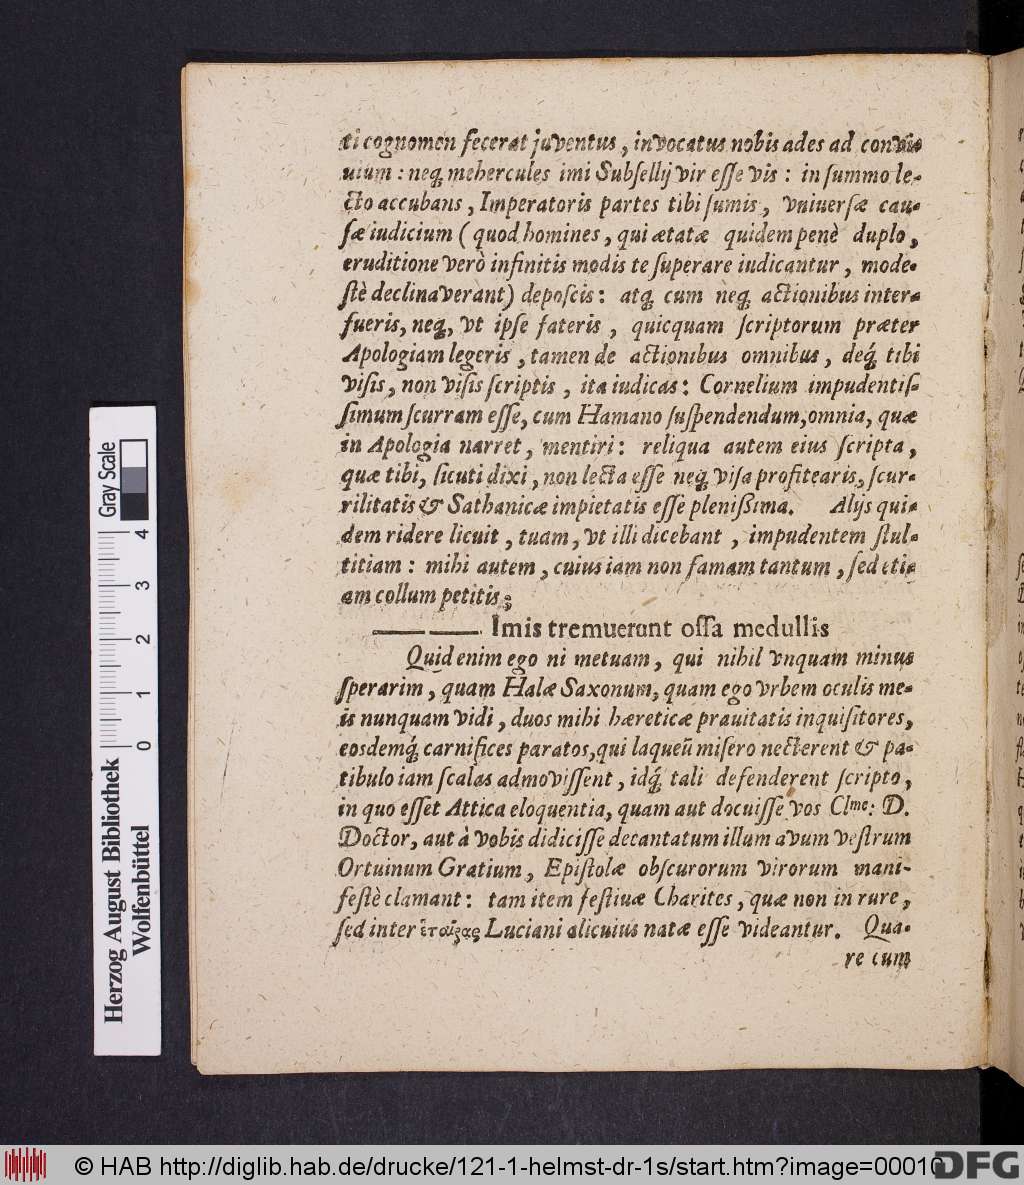 ti cognomen fecerat juventus, invocatus nobis ades ad convi-
uium: neq; mehercules imi Subsellij vir esse vis: in summo le-
cto accubans, Imperatoris partes tibi sumis, vniuersæ cau-
sæ iudicium (quod homines, qui ætatæ quidem penè duplo,
eruditione verò infinitis modis te superare iudicantur, mode-
stè declinaverant) deposcis: atq; cum neq; actionibus inter-
fueris, neq;, vt ipse fateris, quicquam scriptorum præter
Apologiam legeris, tamen de actionibus omnibus, deq́; tibi
visis, non visis scriptis, ita iudicas: Cornelium impudentis-
simum scurram esse, cum Hamano suspendendum, omnia, quæ
in Apologia narret, mentiri: reliqua autem eius scripta,
quæ tibi, sicuti dixi, non lecta esse neq; visa profitearis, scur-
rilitatis & Sathanicæ impietatis esse plenißima. Alijs qui-
dem ridere licuit, tuam, vt illi dicebant, impudentem stul-
titiam: mihi autem, cuius iam non famam tantum, sed eti-
am collum petitis;
Imis tremuerunt ossa medullis
Quid enim ego ni metuam, qui nihil vnquam minus
sperarim, quam Halæ Saxonum, quam ego vrbem oculis me-
is nunquam vidi, duos mihi hæreticæ prauitatis inquisitores,
eosdemq́; carnifices paratos, qui laqueũ misero necterent & pa-
tibulo iam scalas admovissent, idq́; tali defenderent scripto,
in quo esset Attica eloquentia, quam aut docuisse vos Cl^me: D.
Doctor, aut à vobis didicisse decantatum illum avum vestrum
Ortuinum Gratium, Epistolæ obscurorum virorum mani-
festè clamant: tam item festiuæ Charites, quæ non in rure,
sed inter ἑταίρας Luciani alicuius natæ esse videantur. Qua-
re cum
Gray Scale
4
3
2
1
0
Herzog August Bibliothek
Wolfenbüttel
© HAB http://diglib.hab.de/drucke/121-1-helmst-dr-1s/start.htm?image=00010
DFG